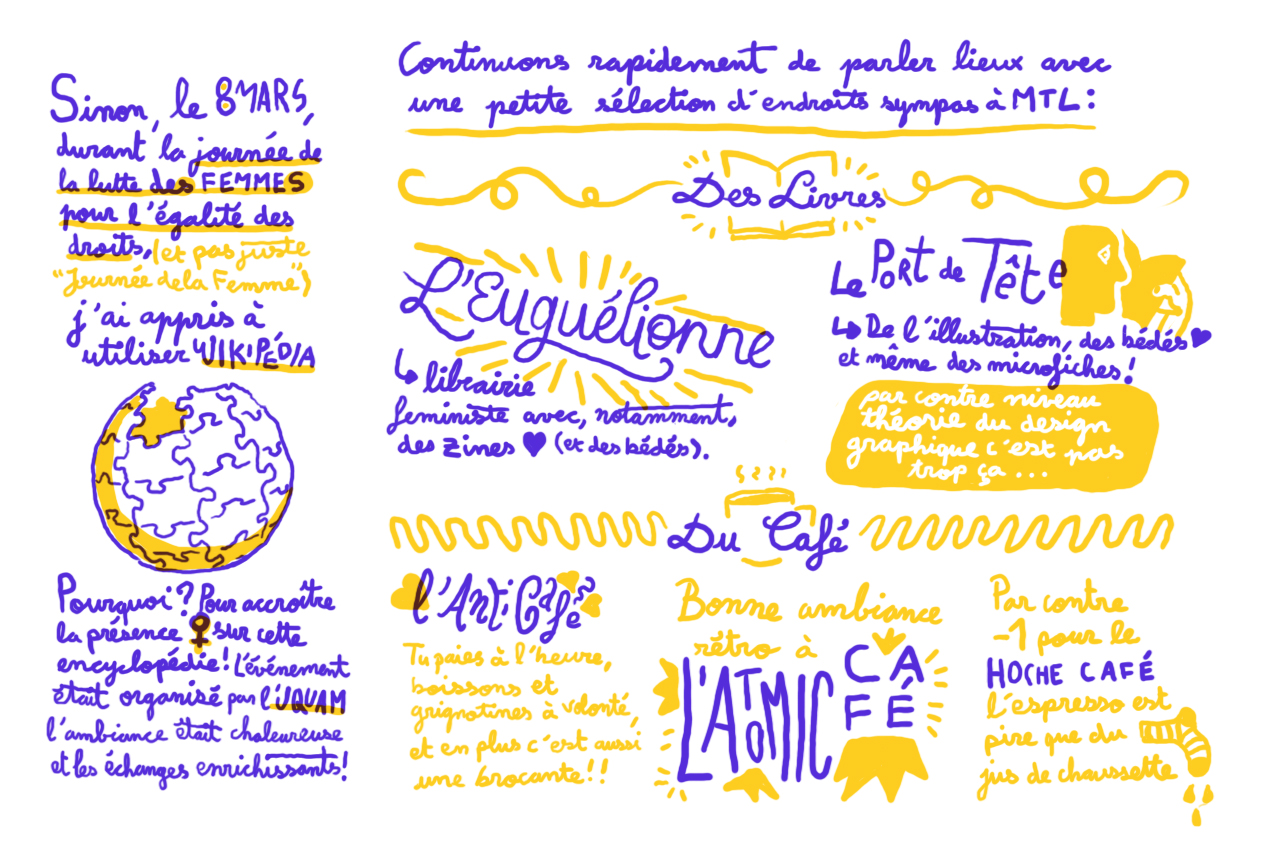 Sinon, le 8 MARS,
durant la journée de
la lutte des FEMMES
pour l'égalité des
droits, (et pas juste
"Journée de la Femme")
j'ai appris à
utiliser WIKIPÉDIA
Pourquoi ? Pour accroître
la présence ♀ sur cette
encyclopédie ! L'événement
était organisé par l'UQUAM
l'ambiance était chaleureuse
et les échanges enrichissants !
Continuons rapidement de parler lieux avec
une petite sélection d'endroits sympas à MTL :
Des Livres
L'Euguélionne
↳ librairie
feministe avec, notamment,
des zines ♥ (et des bédés).
Le PORT de Tête
↳ De l'illustration, des bédés ♥
et même des microfiches !
par contre niveau
théorie du design
graphique c'est pas
trop ça ...
Du Café
l'Anti Café
Tu paies à l'heure,
boissons et
grignotines à volonté,
et en plus c'est aussi
une brocante !!
Bonne ambiance
rétro à
L'ATOMIC
CA
FÉ
Par contre
-1 pour le
HOCHE CAFÉ
l'espresso est
pire que du
jus de chaussette